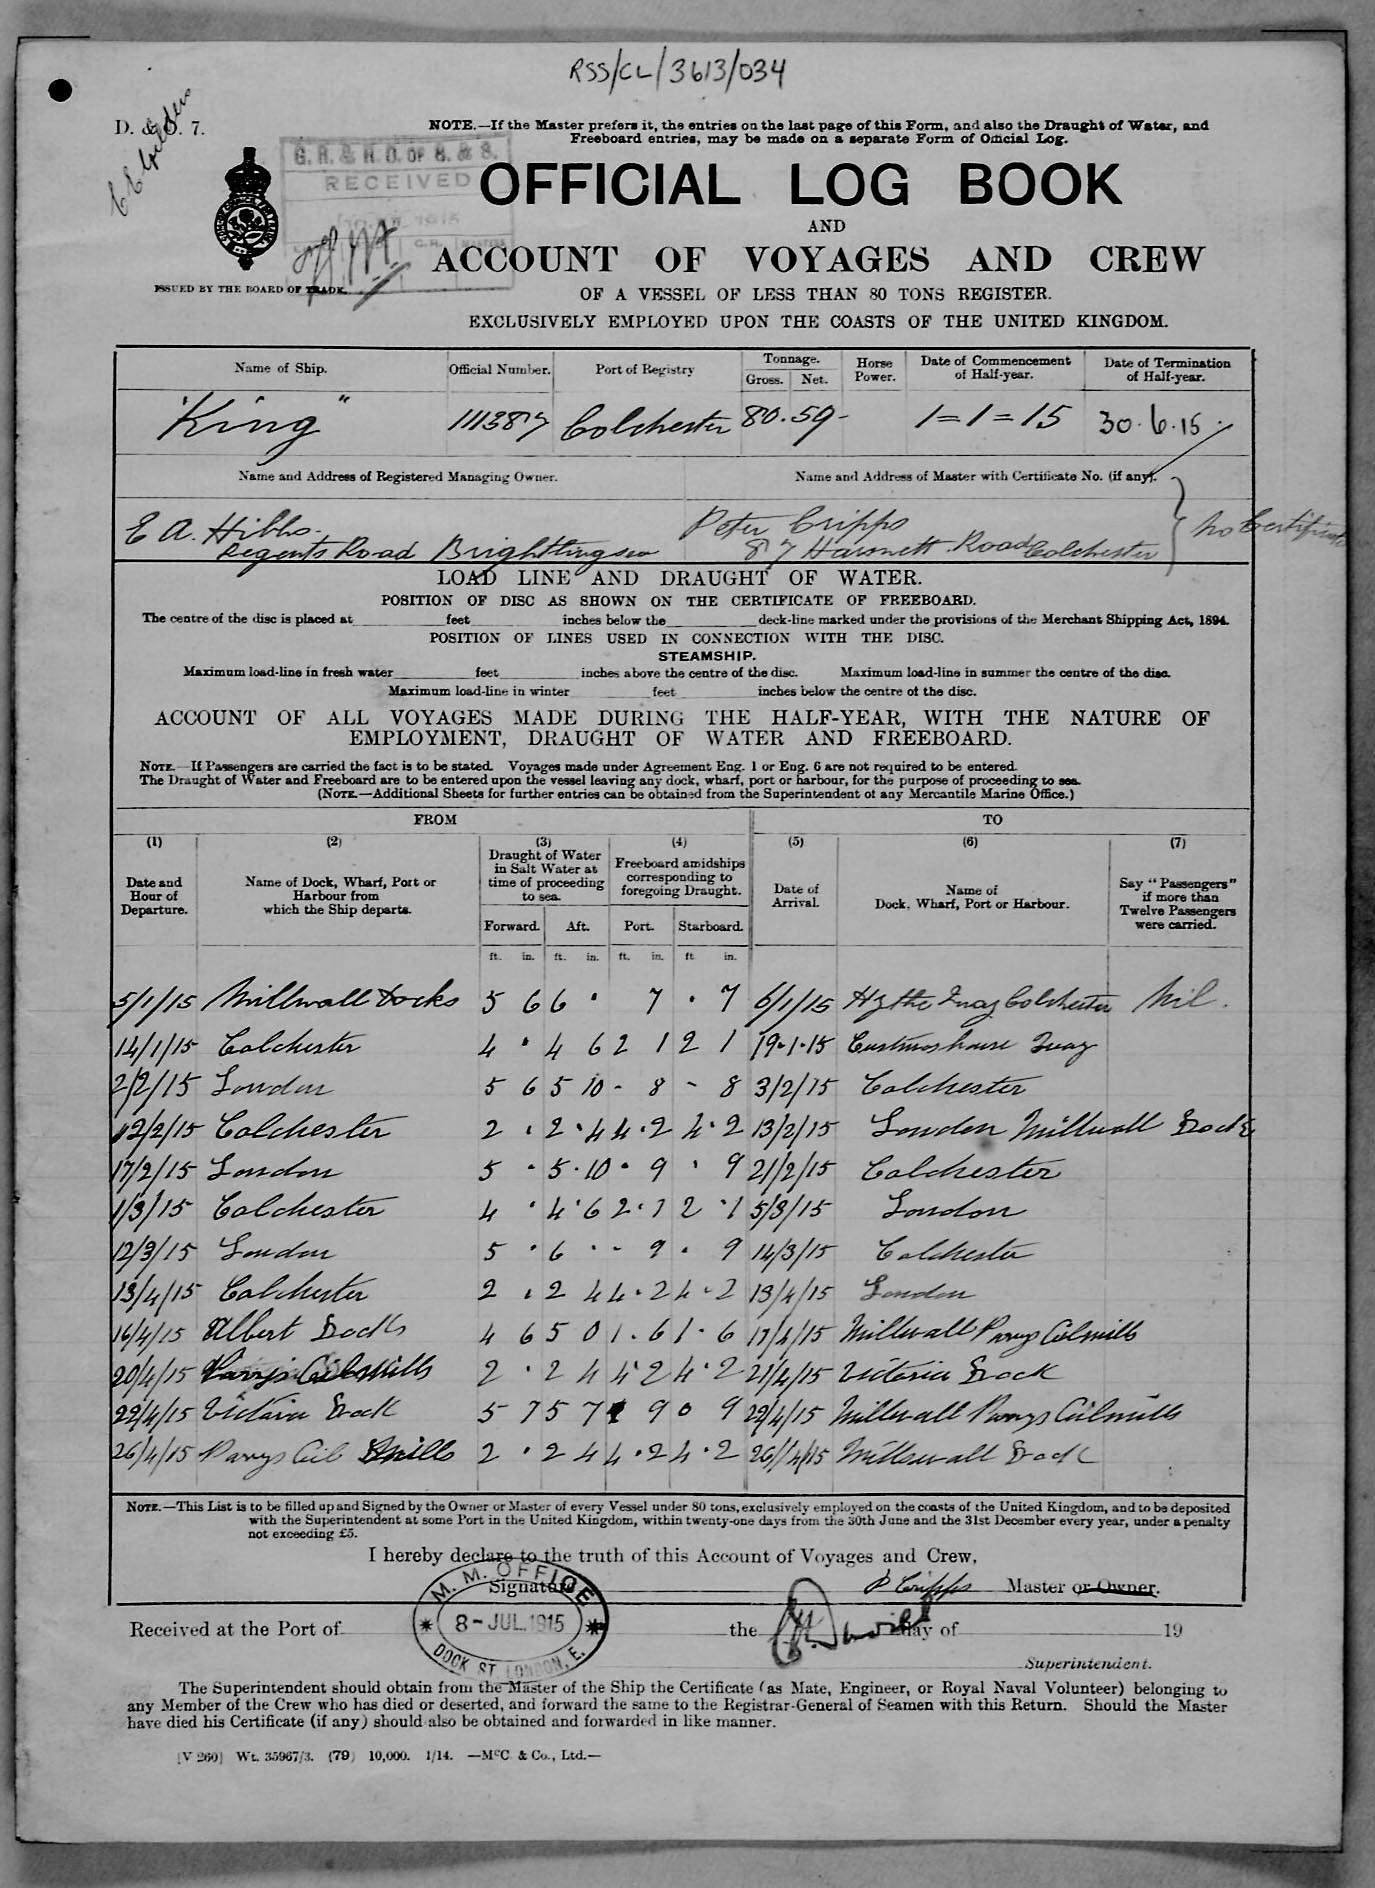 RSS/CL/3613/034
D. & O. 7.
NOTE.—If the Master prefers it, the entries on the last page of this Form, and also the Draught of Water, and
Freeboard entries, may be made on a separate Form of Official Log.
G. R. & R. O. OF S. & S.
RECEIVED
OFFICIAL LOG BOOK
AND
ACCOUNT OF VOYAGES AND CREW
ISSUED BY THE BOARD OF TRADE.
OF A VESSEL OF LESS THAN 80 TONS REGISTER.
EXCLUSIVELY EMPLOYED UPON THE COASTS OF THE UNITED KINGDOM.
Name of Ship. Official Number. Port of Registry Tonnage. Gross. Net. Horse Power. Date of Commencement of Half-year. Date of Termination of Half-year.
"King" 111387 Colchester 80. 59- 1=1=15 30.6.15.
Name and Address of Registered Managing Owner. Name and Address of Master with Certificate No. (if any).
E A. Hibbs. Peter Cripps No Certificate
Regents Road Brightlingsea 87 Harsnett Road Colchester
LOAD LINE AND DRAUGHT OF WATER.
POSITION OF DISC AS SHOWN ON THE CERTIFICATE OF FREEBOARD.
The centre of the disc is placed at feet inches below the deck-line marked under the provisions of the Merchant Shipping Act, 1894.
POSITION OF LINES USED IN CONNECTION WITH THE DISC.
STEAMSHIP.
Maximum load-line in fresh water feet inches above the centre of the disc. Maximum load-line in summer the centre of the disc.
Maximum load-line in winter feet inches below the centre of the disc.
ACCOUNT OF ALL VOYAGES MADE DURING THE HALF-YEAR, WITH THE NATURE OF
EMPLOYMENT, DRAUGHT OF WATER AND FREEBOARD.
NOTE.—If Passengers are carried the fact is to be stated. Voyages made under Agreement Eng. 1 or Eng. 6 are not required to be entered.
The Draught of Water and Freeboard are to be entered upon the vessel leaving any dock, wharf, port or harbour, for the purpose of proceeding to sea.
(NOTE.—Additional Sheets for further entries can be obtained from the Superintendent of any Mercantile Marine Office.)
FROM TO
(1) (2) (3) (4) (5) (6) (7)
Date and Hour of Departure. Name of Dock, Wharf, Port or Harbour from which the Ship departs. Draught of Water in Salt Water at time of proceeding to sea. Freeboard amidships corresponding to foregoing Draught. Date of Arrival. Name of Dock, Wharf, Port or Harbour. Say "Passengers" if more than Twelve Passengers were carried.
Forward. Aft. Port. Starboard.
ft. in. ft. in. ft. in. ft. in.
5/1/15 Millwall Docks 5 6 6 . 7 . 7 6/1/15 Hythe Quay Colchester Nil.
14/1/15 Colchester 4 . 4 6 2 1 2 1 19.1.15 Customs house Quay
2/2/15 London 5 6 5 10 - 8 - 8 3/2/15 Colchester
12/2/15 Colchester 2 . 2 . 4 4 . 2 4 . 2 13/2/15 London Millwall Docks
17/2/15 London 5 . 5 . 10 . 9 . 9 21/2/15 Colchester
1/3/15 Colchester 4 . 4 . 6 2 . 1 2 . 1 5/3/15 London
12/3/15 London 5 . 6 . - 9 . 9 14/3/15 Colchester
13/4/15 Colchester 2 . 2 4 4 . 2 4 . 2 13/4/15 London
16/4/15 Albert Docks 4 6 5 0 1 . 6 1 . 6 17/4/15 Millwall Parrys Oilmills
20/4/15 Parrys Oil Mills 2 . 2 4 4 . 2 4 . 2 21/4/15 Victoria Dock
22/4/15 Victoria Dock 5 7 5 7 9 0 9 22/4/15 Millwall Parrys Oilmills
26/4/15 Parrys Oil Mills 2 . 2 4 4 . 2 4 . 2 26/4/15 Millwall Dock
NOTE.—This List is to be filled up and Signed by the Owner or Master of every Vessel under 80 tons, exclusively employed on the coasts of the United Kingdom, and to be deposited
with the Superintendent at some Port in the United Kingdom, within twenty-one days from the 30th June and the 31st December every year, under a penalty
not exceeding £5.
I hereby declare to the truth of this Account of Voyages and Crew,
Signature P Cripps Master or Owner.
M. M. OFFICE
8-JUL.1915
DOCK ST. LONDON, E.
Received at the Port of the day of 19
Superintendent.
The Superintendent should obtain from the Master of the Ship the Certificate (as Mate, Engineer, or Royal Naval Volunteer) belonging to
any Member of the Crew who has died or deserted, and forward the same to the Registrar-General of Seamen with this Return. Should the Master
have died his Certificate (if any) should also be obtained and forwarded in like manner.
[V 260] Wt. 35967/3. (79) 10,000. 1/14. —McC. & Co., Ltd.—